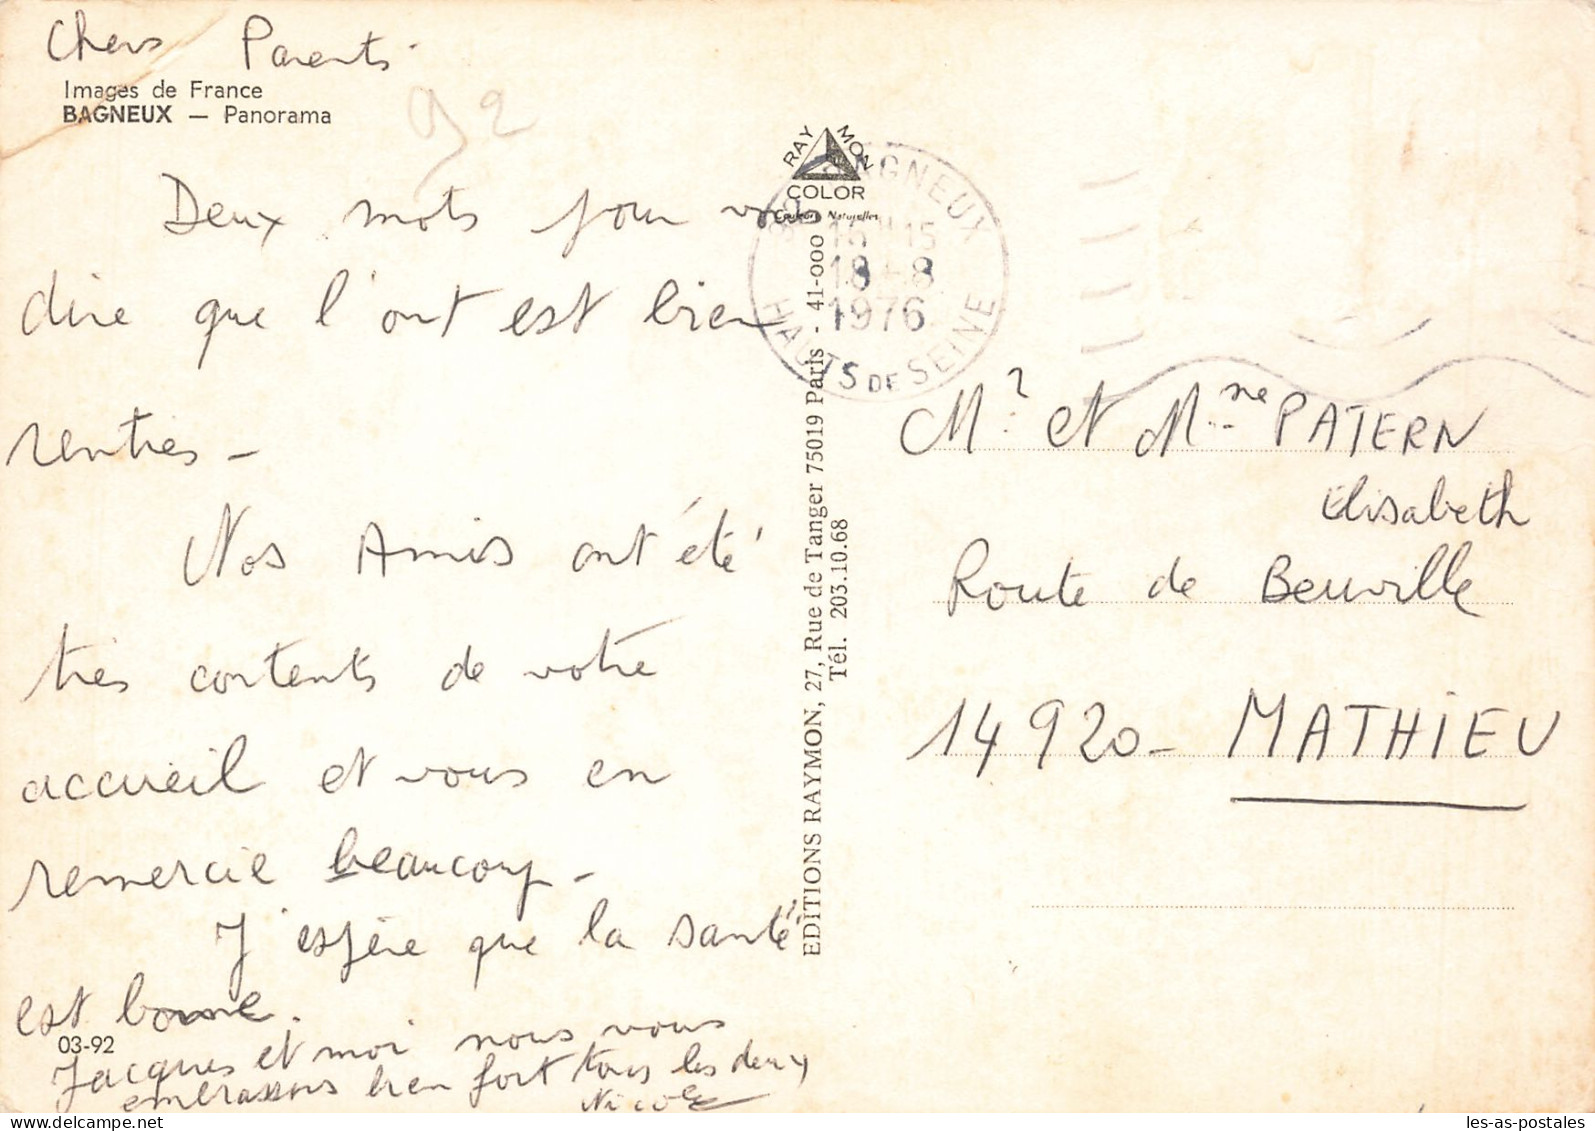 Chers Parents.
Images de France
BAGNEUX — Panorama
92
Deux mots pour vous
dire que l'ont est bien
rentrés -
Nos Amis ont été
très contents de votre
accueil et vous en
remercie beaucoup -
J'espère que la santé
est bonne.
03-92
Jacques et moi nous vous
embrassons bien fort tous les deux
Nicole
RAYMON
COLOR
Couleurs Naturelles
BAGNEUX
15H15
18-8
1976
HAUTS DE SEINE
EDITIONS RAYMON, 27, Rue de Tanger 75019 Paris - 41-000
Tél. 203.10.68
Mr et Mme PATERN
Elisabeth
Route de Beuville
14920- MATHIEU
les-as-postales